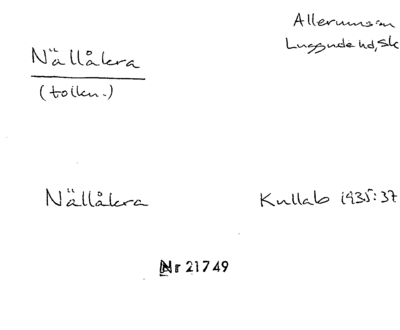 Allerums sn
Luggude hd, Sk
Nällåkra
(tolkn.)
Nällåkra
Kullab 1935:37
Nr 21749